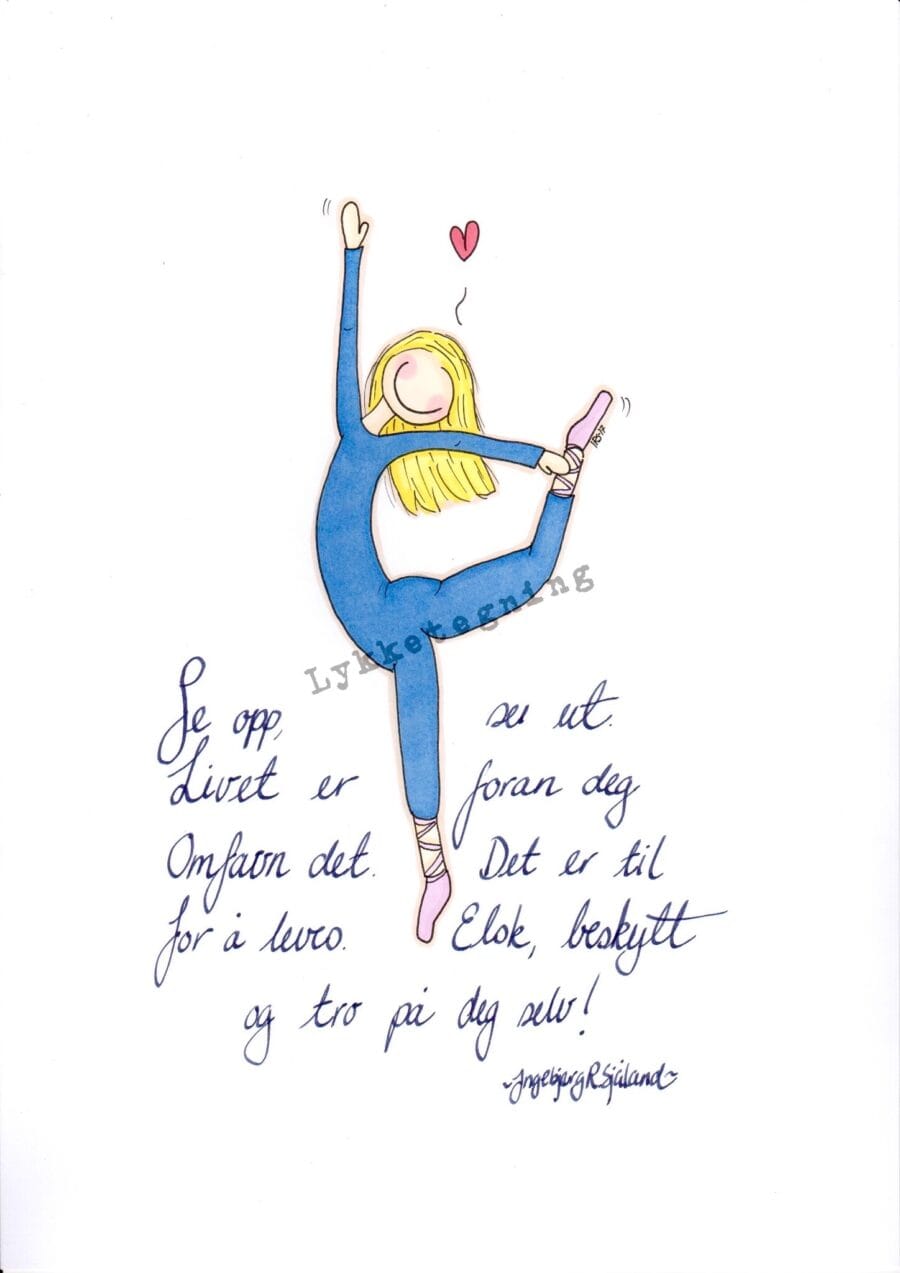 Lykketegning
Se opp, se ut.
Livet er foran deg
Omfavn det. Det er til
for å leves. Elsk, beskytt
og tro på deg selv!
~Ingebjørg R Sjåland~